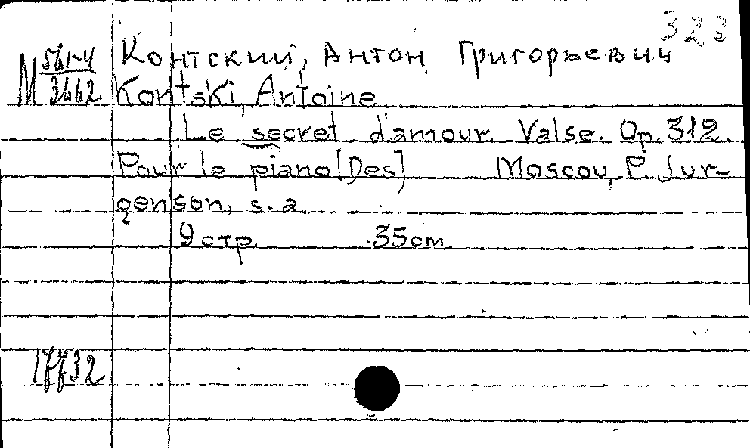 323
М 561-4 Контский, Антон Григорьевич
3662 Kontski, Antoine
Le secret d'amour. Valse. Op. 312.
Pour le piano [Des] Moscou, P. Jur-
genson, s.a
9 стр. 35 cm